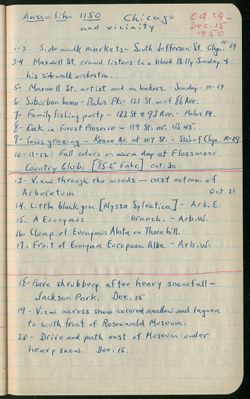 Ansco film 1150 Chicago
and vicinity
Oct. 29 -
Dec. 15
1950
1-2. Sidewalk markets - South Jefferson St. Chgo. 10-29
3-4. Maxwell St. crowd listens to a black Billy Sunday &
his sidewalk orchestra.
5- Maxwell St. artist and onlookers. Sunday - 10-29
6 Suburban home - Palos Pk. - 121 St. w of 86 Ave.
7- Family fishing party - 123 St & 93 Ave. - Palos Pk.
8- Oak in Forest Preserve - 119 St. nr. US 45.
9- Cows grazing - Keane Av. at 107 St. - S.W. of Chgo. 10-29
10-11-12 Fall colors on warm day at Flossmoor
Country Club. [85.2° Fahr.] Oct. 30
13- View through the woods - east entrance of
Arboretum Oct 31
14. Little black gum [Nyssa Sylvatica] - Arb. E.
15. A Euonymus branch. - Arb. W.
16. Clump of Euonymus Alata on Thornhill.
17. Fruit of Euonymus Europaea Alba - Arb. W.
18- Bare shrubbery after heavy snowfall -
Jackson Park. Dec. 15
19- View across snow covered meadow and lagoon
to south front of Rosenwald Museum.
20- Drive and path east of Museum under
heavy snow. Dec. 15.